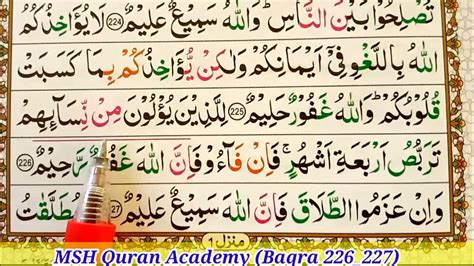 تُصْلِحُوْا بَيْنَ النَّاسِ ؕ وَاللّٰهُ سَمِيْعٌ عَلِيْمٌ ۝۲۲۴ لَا يُؤَاخِذُكُمُ
اللّٰهُ بِاللَّغْوِ فِيْۤ اَيْمَانِكُمْ وَلٰكِنْ يُّؤَاخِذُكُمْ بِمَا كَسَبَتْ
قُلُوْبُكُمْ ؕ وَاللّٰهُ غَفُوْرٌ حَلِيْمٌ ۝۲۲۵ لِلَّذِيْنَ يُؤْلُوْنَ مِنْ نِّسَآىِٕهِمْ
تَرَبُّصُ اَرْبَعَةِ اَشْهُرٍ ۚ فَاِنْ فَآءُوْ فَاِنَّ اللّٰهَ غَفُوْرٌ رَّحِيْمٌ ۝۲۲۶
وَاِنْ عَزَمُوا الطَّلَاقَ فَاِنَّ اللّٰهَ سَمِيْعٌ عَلِيْمٌ ۝۲۲۷ وَالْمُطَلَّقٰتُ
منزل ١
MSH Quran Academy (Baqra 226 227)